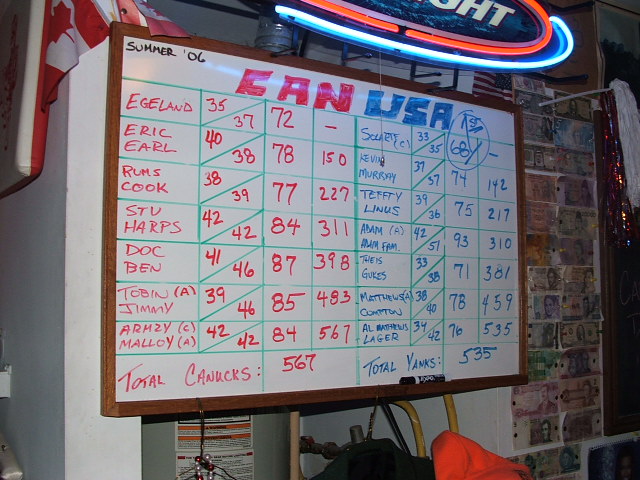 GHT
SUMMER '06
CAN USA
EGELAND 35 37 72 -
ERIC EARL 40 38 78 150
RUMS COOK 38 39 77 227
STU HARPS 42 42 84 311
DOC BEN 41 46 87 398
TOBIN (A) JIMMY 39 46 85 483
ARMZY (C) MALLOY (A) 42 42 84 567
TOTAL CANUCKS: 567
(C) 33 35 1ST 68/ -
KEVIN MURRAY 37 37 74 142
TEFFTY LINUS 39 36 75 217
ADAM (A) ADAM FAM. 42 51 93 310
THEIS GUKES 33 38 71 381
MATTHEWS (A) COMPTON 38 40 78 459
AL MATHEWS LAGER 34 42 76 535
TOTAL YANKS: 535
EXPO